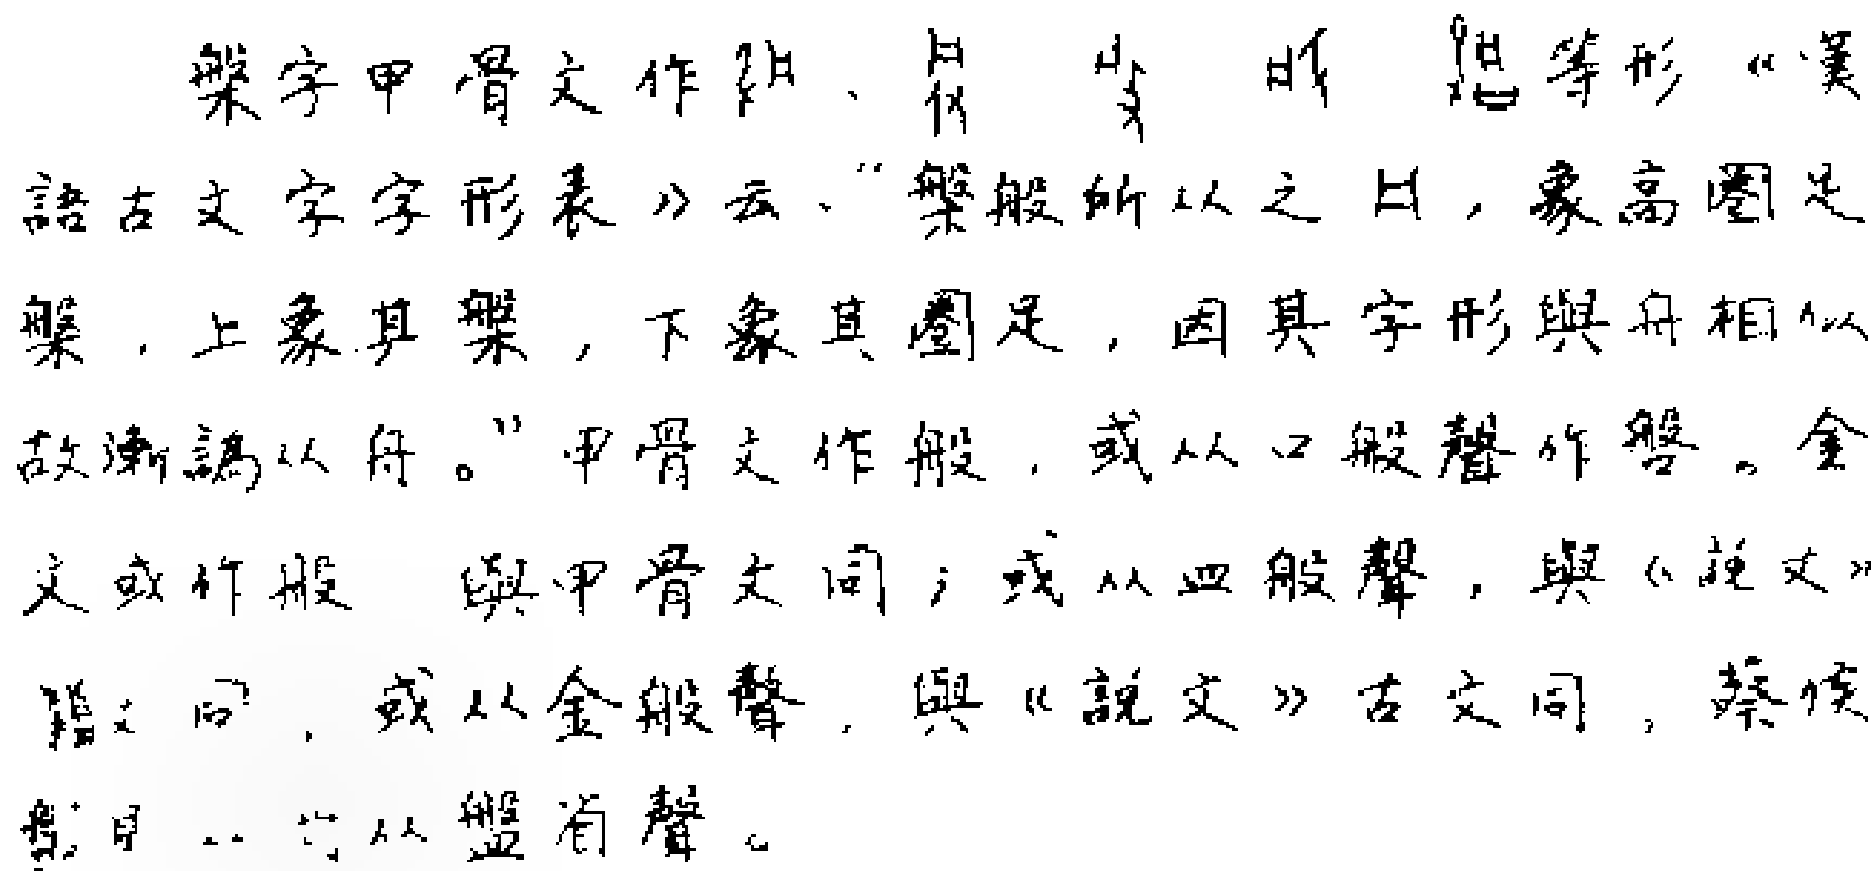 槃字甲骨文作、等形《漢
語古文字字形表》云、“槃般所以之，象高圈足
槃，上象其槃，下象其圈足，因其字形與舟相似
故漸譌以舟。”甲骨文作般，或从口般聲作㗨。金
文或作般 與甲骨文同；或从皿般聲，與《說文》
籀文同，或从金般聲，與《說文》古文同，蔡侯
从盤省聲。